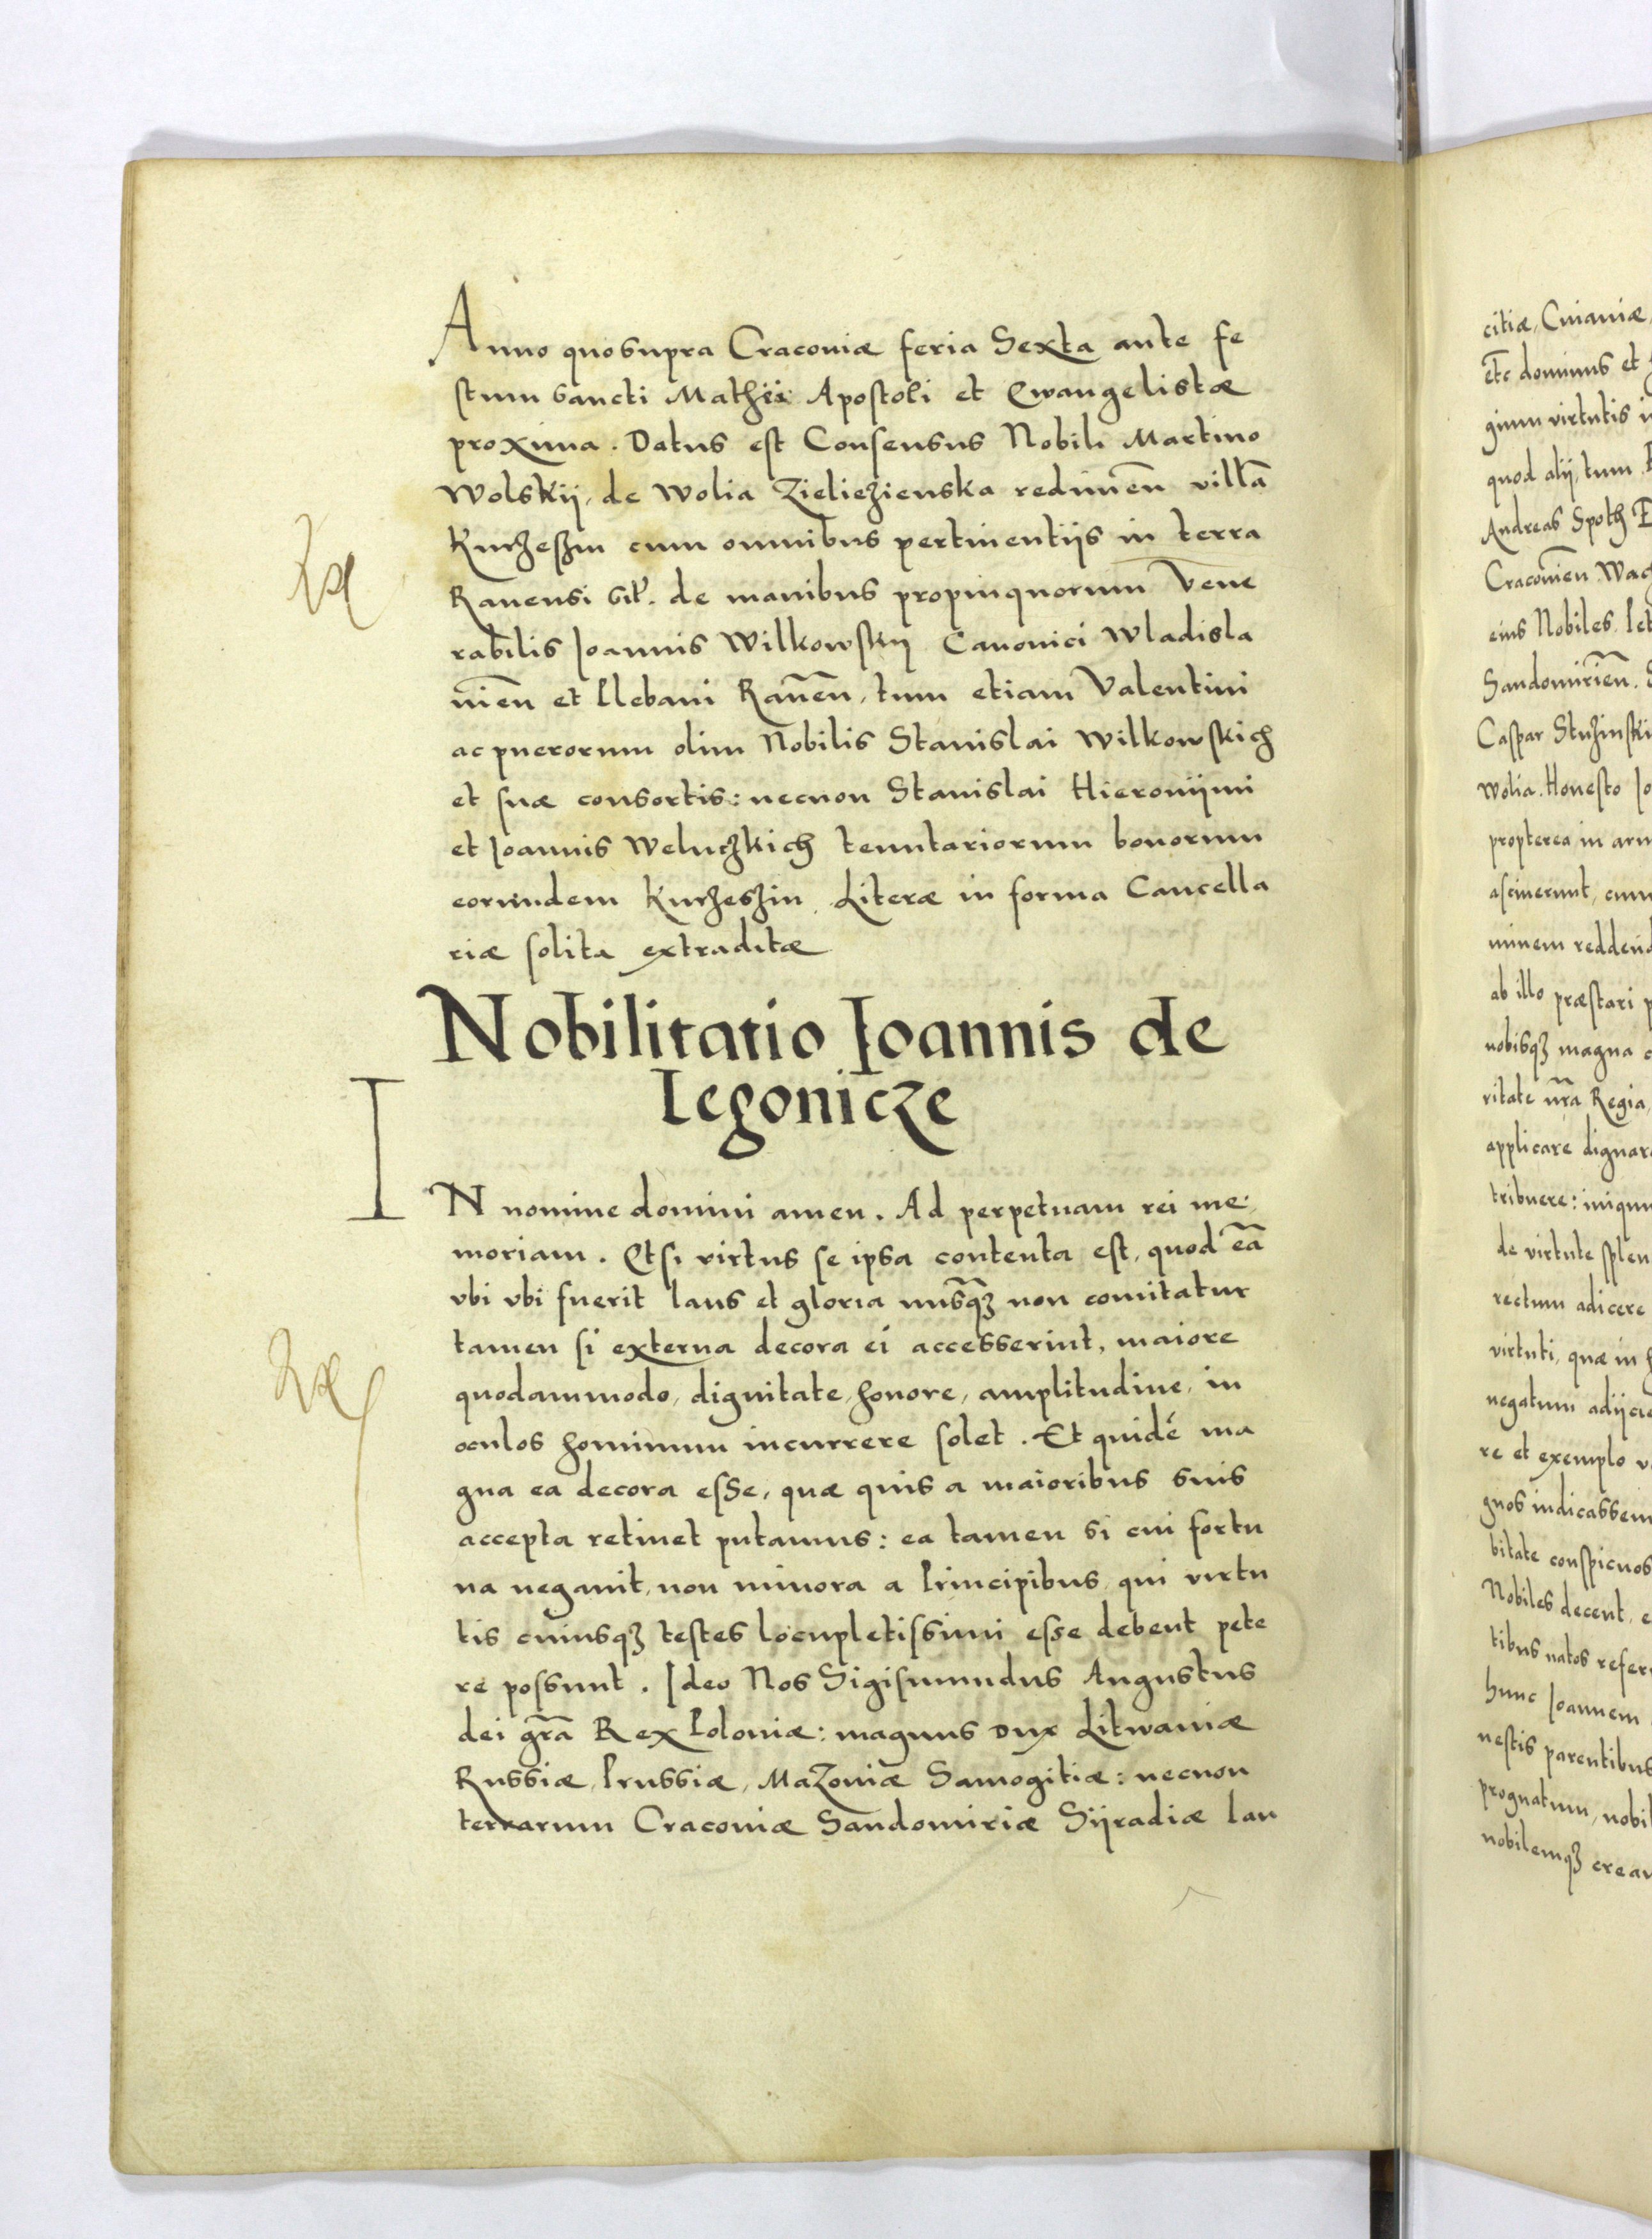 Anno quo supra Cracoviæ feria Sexta ante fe
stum sancti Mathei Apostoli et Ewangelistæ
proxima. Datus est Consensus Nobili Martino
Wolskij, de Wolia Zieliezienska redimeñ villã
Kurzeszin cum omnibus pertinentiis in terra
Ravensi de manibus propinquorum Vene
rabilis Joannis Wilkowskij Canonici Wladisla
vieñ et Plebani Raveñ, tum etiam Valentini
ac puerorum olim Nobilis Stanislai Wilkowskich
et suæ consortis: necnon Stanislai Hieronijmi
et Joannis Weluczkich tenutariorum bonorum
eorundem Kurzeszin. Literæ in forma Cancella
riæ solita extraditæ
Nobilitatio Ioannis de
Iegonicze
IN nomine domini amen. Ad perpetuam rei me
moriam. Etsi virtus se ipsa contenta est, quod eã
vbi vbi fuerit laus et gloria nusq̃ʒ non comitatur
tamen si externa decora ei accesserint, maiore
quodammodo, dignitate, honore, amplitudine, in
oculos hominum incurrere solet. Et quidé ma
gna ea decora esse, quæ quis a maioribus suis
accepta retinet putamus: ea tamen si cui fortu
na negavit, non minora a Principibus, qui virtu
tis cuiusqʒ testes locupletissimi esse debent pete
re possunt. Ideo Nos Sigismundus Augustus
dei grã Rex Poloniæ: magnus Dux Litwaniæ
Russiæ, Prussiæ, Mazoviæ Samogitiæ: necnon
terrarum Cracoviæ Sandomiriæ Sijradiæ Lan
citiæ, Cuiaviæ,
etc dominus et
gium virtutis
quod alij, tum
Andreas Spoth
Cracovieñ
eius Nobiles
Sandomirieñ.
Caspar
Wolia. Honesto
propterea in
asciverunt, cum
ab illo præstari
nobisqʒ magna
ritate nrã Regia
applicare
tribuere:
de virtute
rectum adicere
virtuti, quæ in
negatum
re et exemplo
bitate conspicuos
Nobiles decent,
tibus natos
hunc Joannem
nestis parentibus
prognatum,
nobilemqʒ